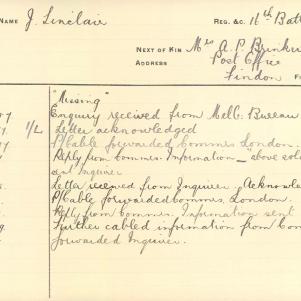 NAME J. Sinclair REG. &C. 16th Batt
NEXT OF KIN Mrs A. P.
ADDRESS Post Office
Findon
"Missing"
Enquiry received from Melb. Bureau
1/L Letter acknowledged
P/Cable forwarded Commes. London.
Reply from Commes. Information – above
sent Inquirer
Letter received from Inquirer. Acknowle
P/Cable forwarded Commes. London.
Reply from Commes. Information sent
Further cabled information from Com
forwarded Inquirer.